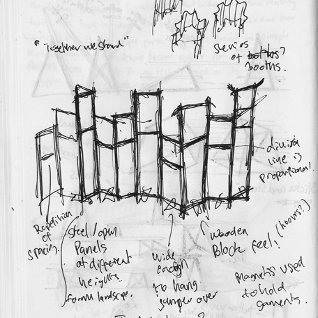 "together we stand"
Series
of booths?
booths.
division
line is
proportional
Repetition
of
spacing.
steel/open
Panels
at different
heights
form landscape.
wide
enough
to hang
jumper over
wooden
Block feel!
Magnets used
to hold
garments.